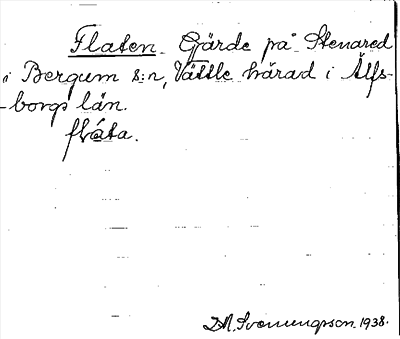 Flaten. Gjärde på Stenared
i Bergum s:n, Vättle härad i Älfs-
-borgs län.
flåta.
1938.